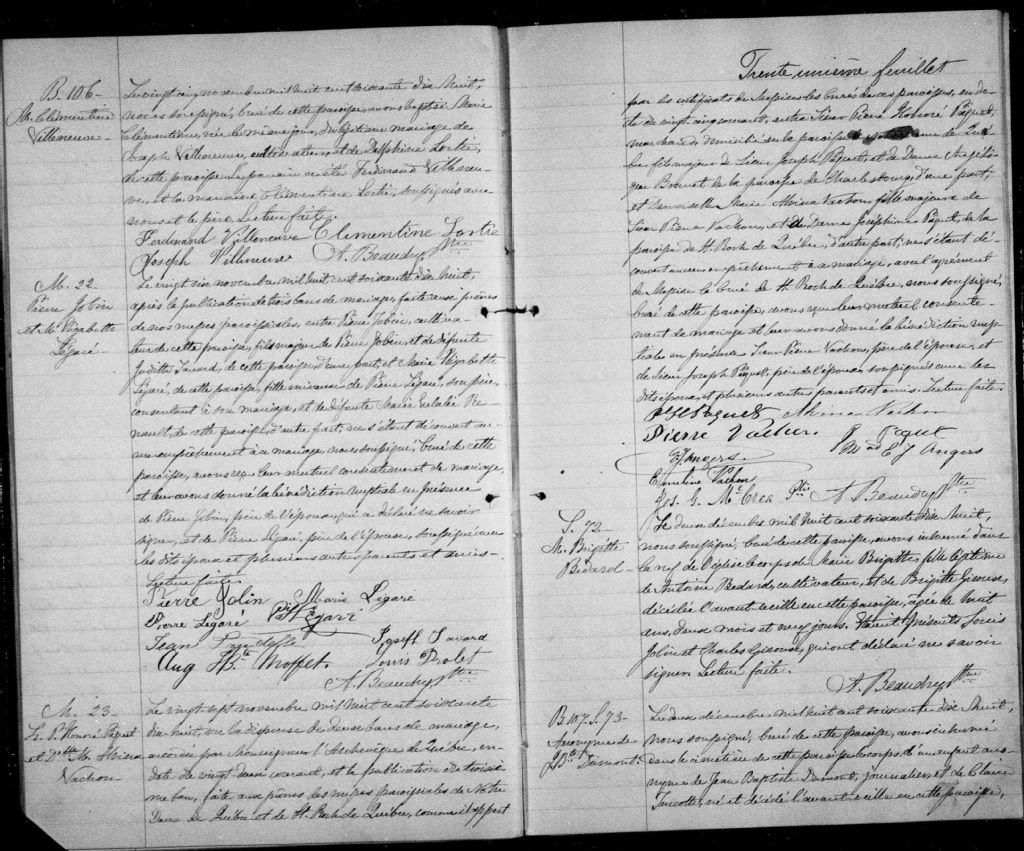 B. 106-
M. Clementine
Villeneuve
Le vingt cinq novembre mil huit cent soixante dix huit,
nous soussigné, curé de cette paroisse, avons baptisé Marie
Clémentine, née le même jour, du légitime mariage de
Joseph Villeneuve, cultivateur et de Delphine Lortie,
de cette paroisse. Le parrain a été Ferdinand Villeneu-
ve, et la marraine Clémentine Lortie, soussignés avec
nous et le père. Lecture faite.
Ferdinand Villeneuve Clementine Lortie
Joseph Villeneuve A. Beaudry Ptre
M. 22-
Pierre Jobin
et M. Elizabette
Légaré-
Le vingt six novembre mil huit cent soixante dix huit,
après la publication de trois bans de mariage, faite aux prônes
de nos messes paroissiales, entre Pierre Jobin, cultiva-
teur de cette paroisse, fils majeur de Pierre Jobin et de défunte
Juditte Savard, de cette paroisse d'une part, et Marie Elizabette
Légaré, de cette paroisse, fille mineure de Pierre Légaré, son père,
consentant à son mariage, et de défunte Marie Eulalie Re-
nault, de cette paroisse, d'autre part; ne s'étant découvert au-
cun empêchement à ce mariage, nous soussigné, Curé de cette
paroisse, avons reçu leur mutuel consentement de mariage,
et leur avons donné la bénédiction nuptiale en présence
de Pierre Jobin, père de l'époux, qui a déclaré ne savoir
signer, et de Pierre Légaré, père de l'épouse, soussigné avec
les dits époux et plusieurs autres parents et amis.
Lecture faite.
Pierre Jobin Marie Légaré
Pierre Legaré Légaré
Jean Joseph Savard
Aug Moffet. Louis Drolet
A. Beaudry Ptre
M. 23-
Sr. P. Honoré Paquet
et Dlle M. Alvina
Vachon
Le vingt sept novembre mil huit cent soixante
dix huit, vu la dispense de deux bans de mariage,
accordée par Monseigneur l'Archevêque de Québec, en
date du vingt deux courant, et la publication du troisiè-
me ban, faite aux prônes des messes paroissiales de Notre
Dame de Québec et de St. Roch de Québec, comme il appert
Trente unième feuillet
par les certificats de Messieurs les Curés de ces paroisses, en da-
te du vingt cinq courant, entre Sieur Pierre Honoré Paquet,
marchand, domicilié sur la paroisse de Notre Dame de Qué-
bec, fils majeur de Sieur Joseph Paquet et de Dame Angéli-
que Bournet, de la paroisse de Charlesbourg, d'une part;
et Demoiselle Marie Alvina Vachon, fille majeure de
Sieur Pierre Vachon, et de Dame Joséphine Paquet, de la
paroisse de St. Roch de Québec, d'autre part; ne s'étant dé-
couvert aucun empêchement à ce mariage, avec l'agrément
de Messire le Curé de St. Roch de Québec, nous soussigné,
Curé de cette paroisse, avons reçu leur mutuel consente-
ment de mariage et leur avons donné la bénédiction nup-
tiale en présence Sieur Pierre Vachon, père de l'épouse, et
de Sieur Joseph Paquet, père de l'époux, soussignés avec les
dits époux, et plusieurs autres parents et amis. Lecture faite.
P H Paquet Alvina Vachon
Pierre Vachon. J. Paquet
E J Angers. Mad E J Angers
Emeline Vachon
Jos. G. McCrea Ptre A. Beaudry Ptre
S. 72-
M. Brigitte
Bedard-
Le deux décembre mil huit cent soixante dix huit,
nous soussigné, Curé de cette paroisse, avons inhumé dans
la nef de l'église le corps de Marie Brigitte, fille légitime
de Antoine Bedard, cultivateur, et de Brigitte Giroux,
décédée l'avant veille en cette paroisse, âgée de huit
ans, deux mois et neuf jours. Étaient présents Louis
Jobin et Charles Giroux, qui ont déclaré ne savoir
signer. Lecture faite.
A. Beaudry Ptre
B. 107. S. 73-
Anonyme de
J. Bte Dumont-
Le deux décembre mil huit cent soixante dix huit,
nous soussigné, curé de cette paroisse, avons inhumé
dans le cimetière de cette paroisse le corps d'un enfant ano-
nyme de Jean Baptiste Dumont, journalier, et de Claire
Turcotte, né et décédé l'avant veille en cette paroisse,